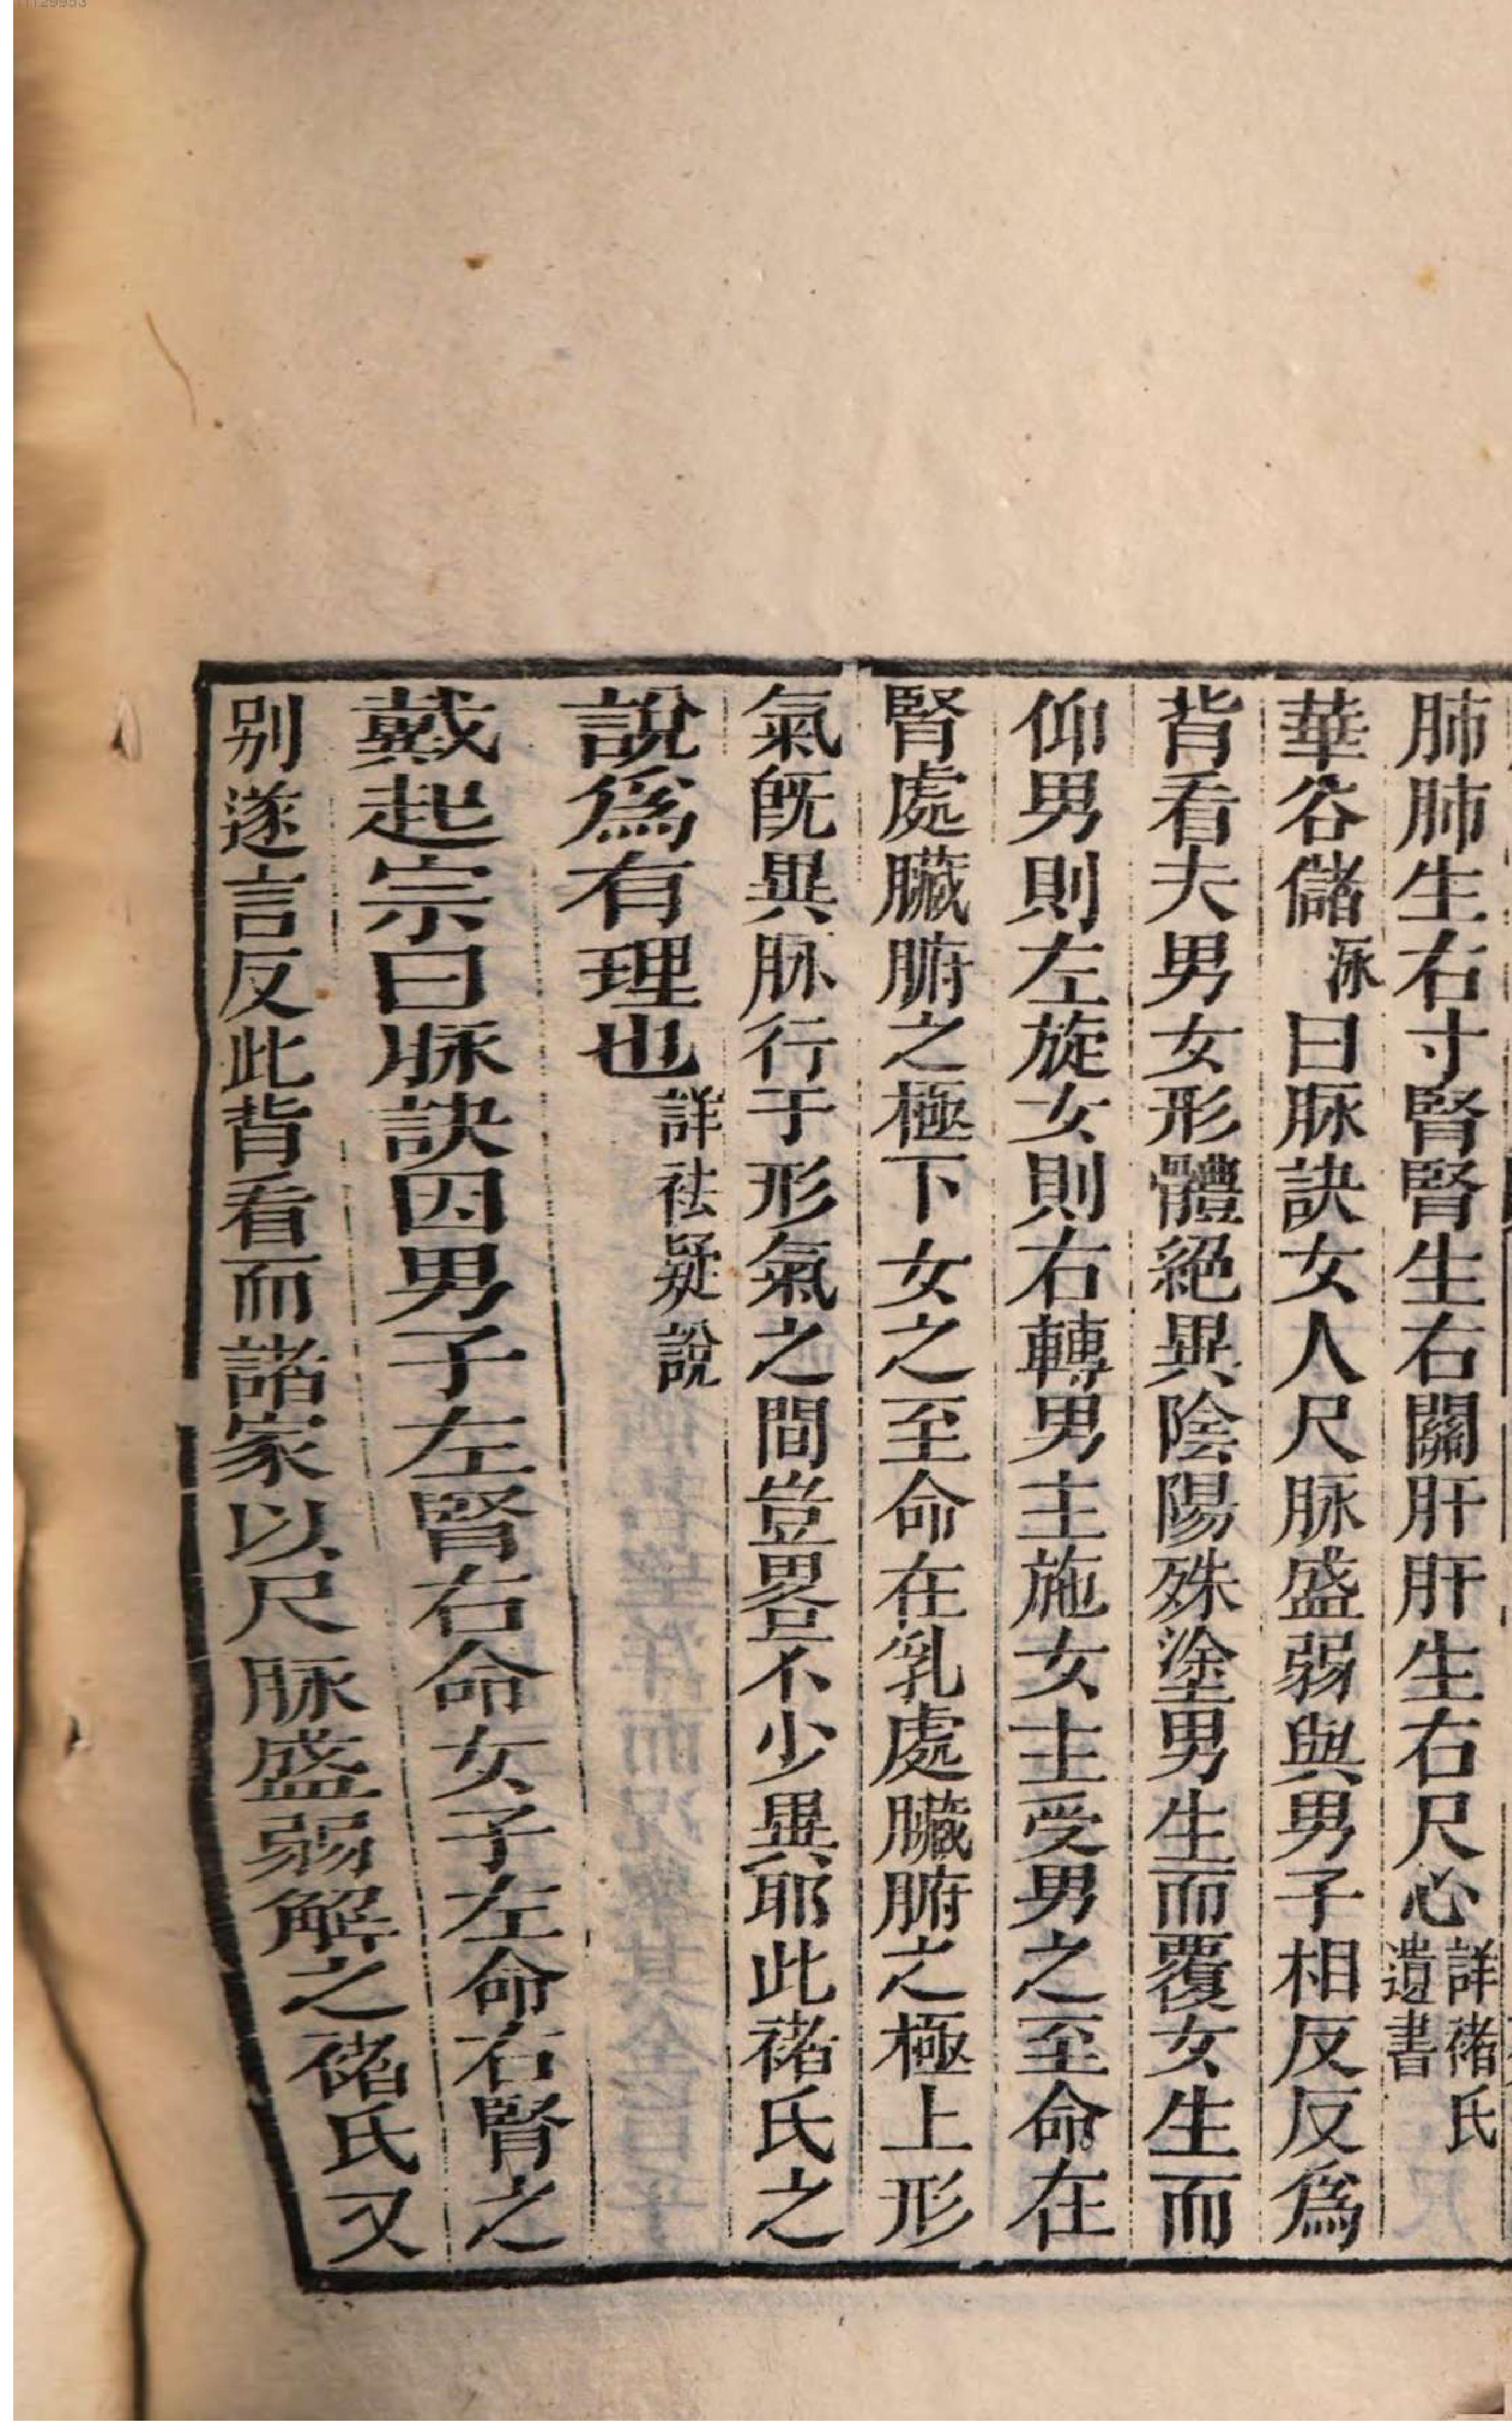 肺肺生右寸腎腎生右關肝肝生右尺心詳褚氏遺書
華谷儲泳曰脉訣女人尺脉盛弱與男子相反反爲
背看夫男女形體絕異陰陽殊塗男生而覆女生而
仰男則左旋女則右轉男主施女主受男之至命在
腎處臟腑之極下女之至命在乳處臟腑之極上形
氣旣異脉行于形氣之間豈畧不少異耶此褚氏之
說爲有理也詳祛疑說
戴起宗曰脉訣因男子左腎右命女子左命右腎之
別遂言反此背看而諸家以尺脉盛弱解之褚氏又